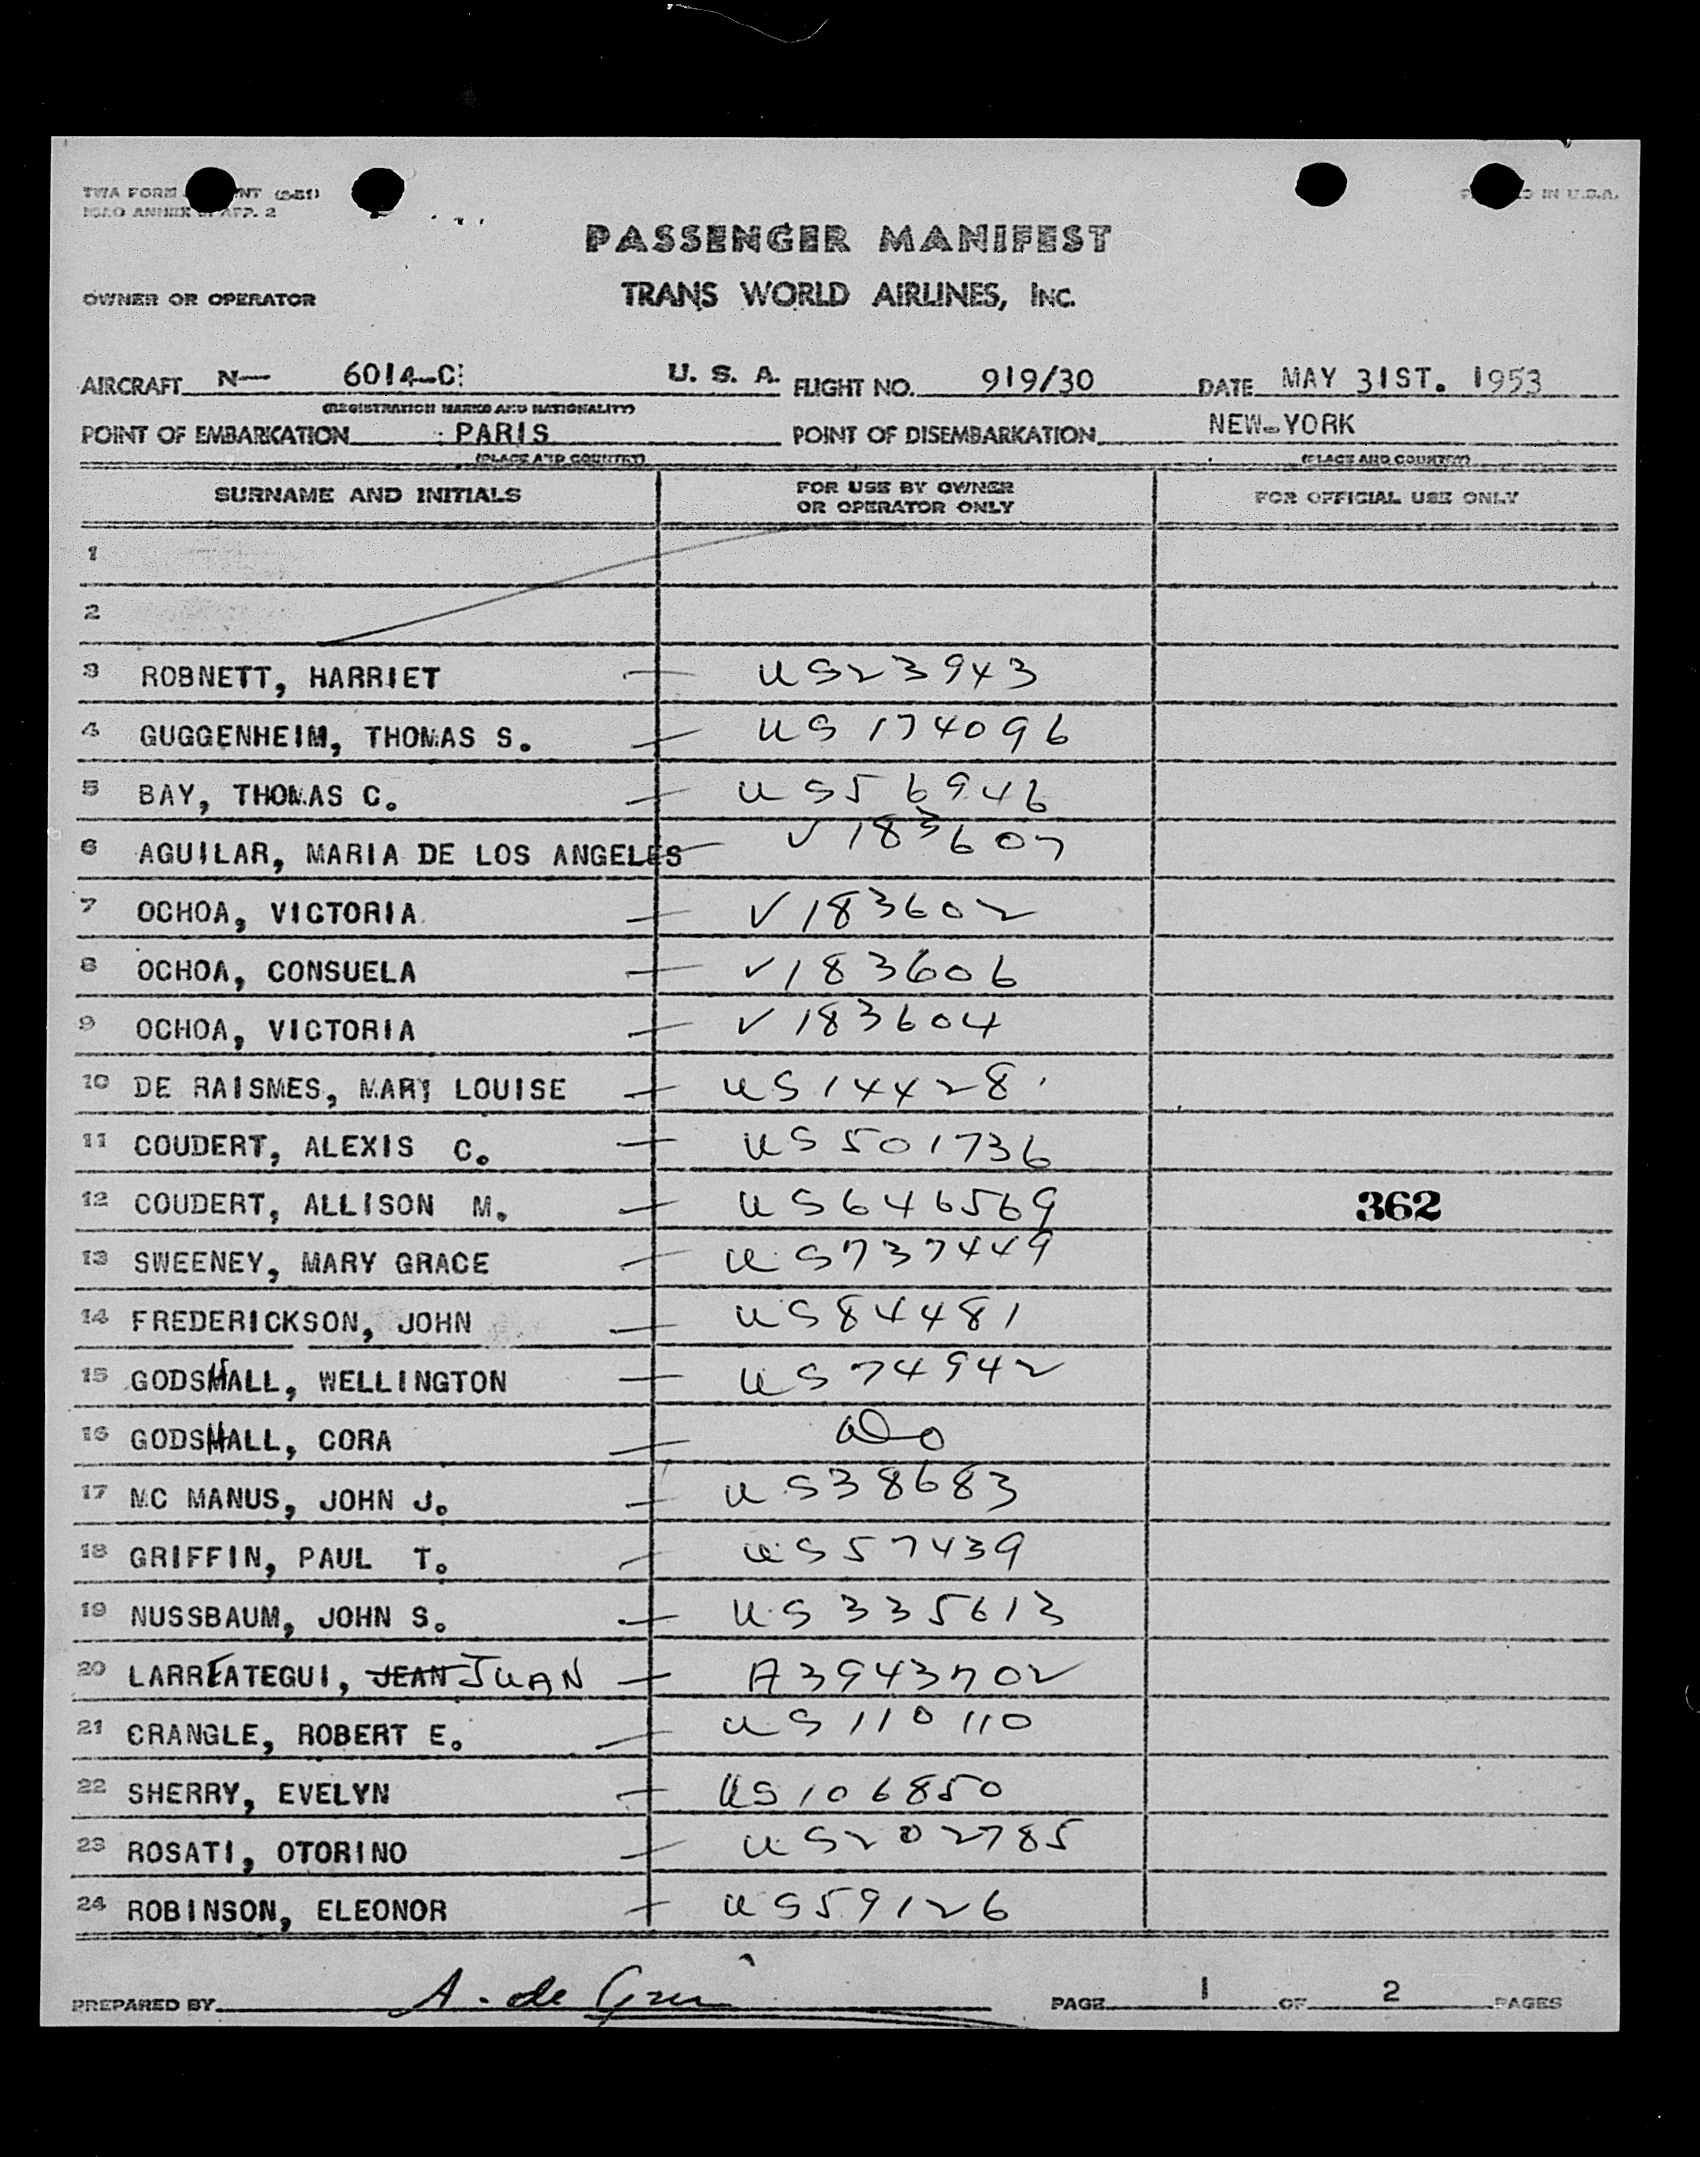 TWA FORM NT (5-51)
ICAO ANNEX 9, APP. 2
IN U.S.A.
PASSENGER MANIFEST
OWNER OR OPERATOR TRANS WORLD AIRLINES, INC.
AIRCRAFT N— 6014-C U. S. A. FLIGHT NO. 919/30 DATE MAY 31ST. 1953
(REGISTRATION MARKS AND NATIONALITY)
POINT OF EMBARKATION PARIS POINT OF DISEMBARKATION NEW-YORK
(PLACE AND COUNTRY) (PLACE AND COUNTRY)
SURNAME AND INITIALS FOR USE BY OWNER OR OPERATOR ONLY FOR OFFICIAL USE ONLY
1
2
3 ROBNETT, HARRIET — US23943
4 GUGGENHEIM, THOMAS S. — US 174096
5 BAY, THOMAS C. — US56946
6 AGUILAR, MARIA DE LOS ANGELES — V183607
7 OCHOA, VICTORIA — V183602
8 OCHOA, CONSUELA — V183606
9 OCHOA, VICTORIA — V183604
10 DE RAISMES, MARY LOUISE — US14428
11 COUDERT, ALEXIS C. — US501736
12 COUDERT, ALLISON M. — US646569 362
13 SWEENEY, MARY GRACE — US737449
14 FREDERICKSON, JOHN — US84481
15 GODSHALL, WELLINGTON — US74942
16 GODSHALL, CORA — do
17 MC MANUS, JOHN J. — US38683
18 GRIFFIN, PAUL T. — US57439
19 NUSSBAUM, JOHN S. — US335613
20 LARREATEGUI, JEAN JUAN — A3943702
21 CRANGLE, ROBERT E. — US110110
22 SHERRY, EVELYN — US106850
23 ROSATI, OTORINO — US202785
24 ROBINSON, ELEONOR — US59126
PREPARED BY A. de PAGE 1 OF 2 PAGES